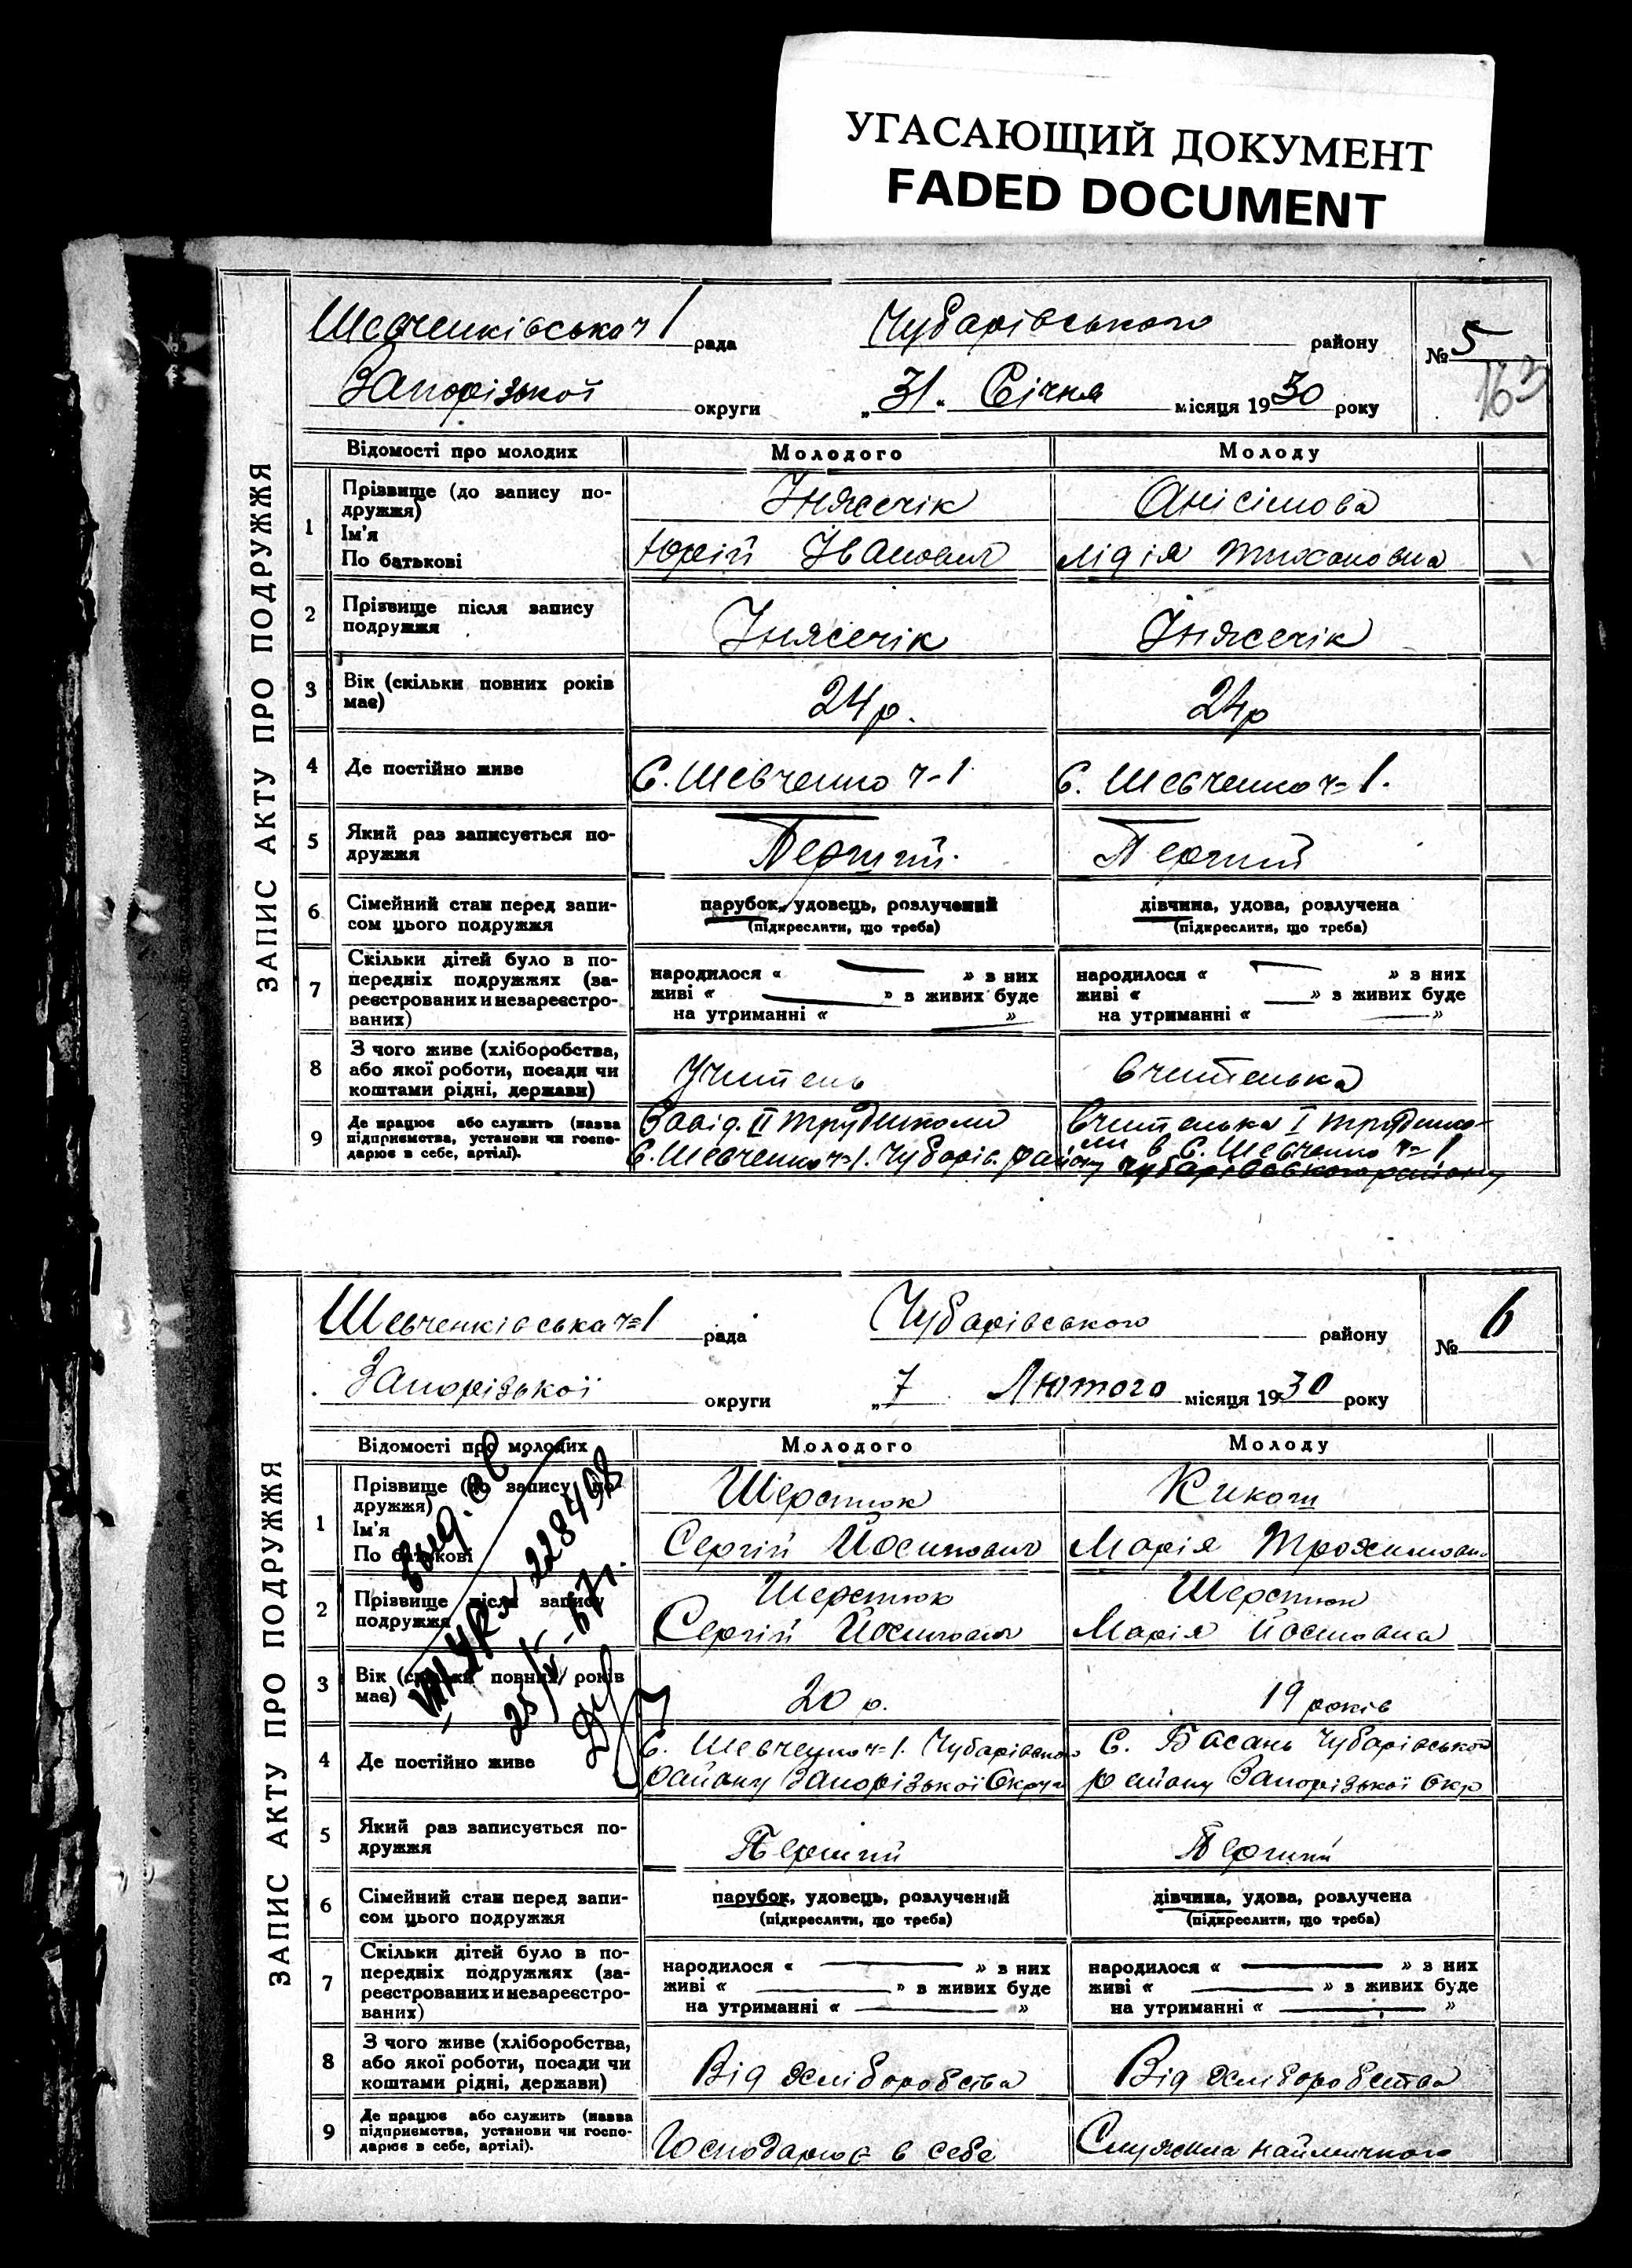 УГАСАЮЩИЙ ДОКУМЕНТ
FADED DOCUMENT
ЗАПИС АКТУ ПРО ПОДРУЖЖЯ
Шевченківська ч 1 рада Чубарівського району № 5
163
Запорізької округи „31" Січня місяця 1930 року
Відомості про молодих Молодого Молоду
1 Прізвище (до запису по-
дружжя)
Ім'я
По батькові
Анісімова
Юрій Іванович Лідія Тихоновна
2 Прізвище після запису
подружжя
3 Вік (скільки повних років
має)
24 р. 24 р
4 Де постійно живе С. Шевченко ч-1 С. Шевченко ч=1.
5 Який раз записується по-
дружжя
Перший. Перший
6 Сімейний стан перед запи-
сом цього подружжя
парубок, удовець, розлучений
(підкреслити, що треба)
дівчина, удова, розлучена
(підкреслити, що треба)
7 Скільки дітей було в по-
передніх подружжях (за-
реєстрованих и незареєстро-
ваних)
народилося « » з них
живі « » з живих буде
на утриманні « »
народилося « » з них
живі « » з живих буде
на утриманні « »
8 З чого живе (хліборобства,
або якої роботи, посади чи
коштами рідні, держави)
Учитель вчителька
9 Де працює або служить (назва
підприємства, установи чи госпо-
дарює в себе, артілі).
Завід. II трудшколи
С. Шевченко ч=1. Чубарів. району
Вчителька I трудшко-
ли в С. Шевченко ч=1
Чубарівського району
ЗАПИС АКТУ ПРО ПОДРУЖЖЯ
Шевченківська ч=1 рада Чубарівського району № 6
Запорізької округи „7 Лютого місяця 1930 року
Відомості про молодих Молодого Молоду
1 Прізвище (до запису по-
дружжя)
Ім'я
По батькові
Шерстюк Кикоть
Сергій Йосипович Марія Трохимовн
2 Прізвище після запису
подружжя
Шерстюк Шерстюк
Сергій Йосипович Марія Йосиповна
3 Вік (скільки повних років
має)
20 р. 19 років
4 Де постійно живе
С. Шевченко ч=1. Чубарівського
району Запорізької Округи
С. Басань Чубарівського
району Запорізької Окр
5 Який раз записується по-
дружжя
Перший Перший
6 Сімейний стан перед запи-
сом цього подружжя
парубок, удовець, розлучений
(підкреслити, що треба)
дівчина, удова, розлучена
(підкреслити, що треба)
7 Скільки дітей було в по-
передніх подружжях (за-
реєстрованих и незареєстро-
ваних)
народилося « » з них
живі « » з живих буде
на утриманні « »
народилося « » з них
живі « » з живих буде
на утриманні « »
8 З чого живе (хліборобства,
або якої роботи, посади чи
коштами рідні, держави)
Від хліборобства Від хліборобства
9 Де працює або служить (назва
підприємства, установи чи госпо-
дарює в себе, артілі).
Господарює в себе
Служила наймичкою